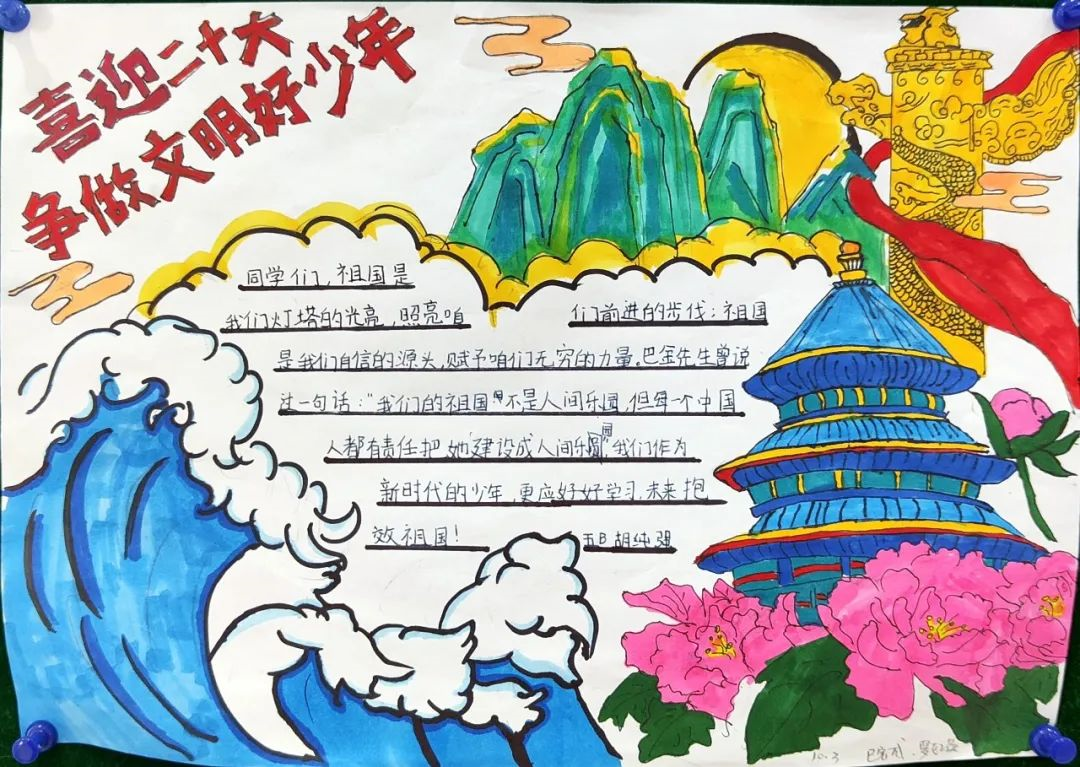 喜迎二十大
争做文明好少年
同学们,祖国是
我们灯塔的光亮,照亮咱
们前进的步伐;祖国
是我们自信的源头,赋予咱们无穷的力量。巴金先生曾说
过一句话:"我们的祖国"不是人间乐园,但每一个中国
人都有责任把她建设成人间乐园。我们作为
新时代的少年,更应好好学习,未来抱
效祖国!
五B 胡纯强
10.3